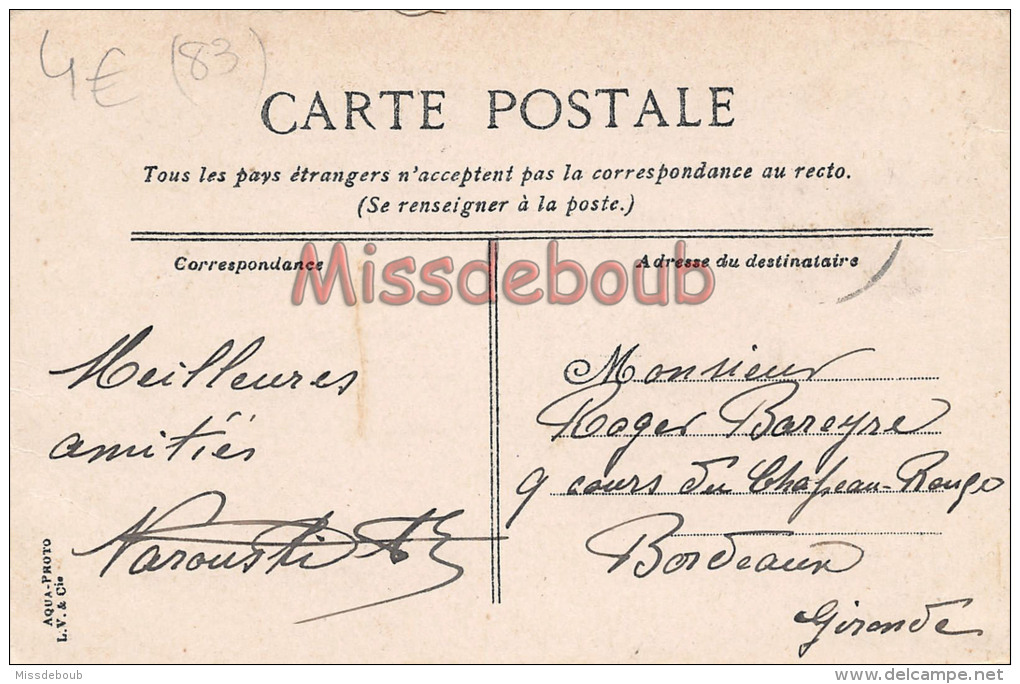 4€ (83)
CARTE POSTALE
Tous les pays étrangers n'acceptent pas la correspondance au recto.
(Se renseigner à la poste.)
Correspondance
Missdeboub
Adresse du destinataire
Meilleures
amitiés
Monsieur
Roger Bareyre
9 cours du Chapeau-Rouge
Bordeaux
Gironde
AQUA-PHOTO
L.V. & Cie
Missdeboub
delcampe.net